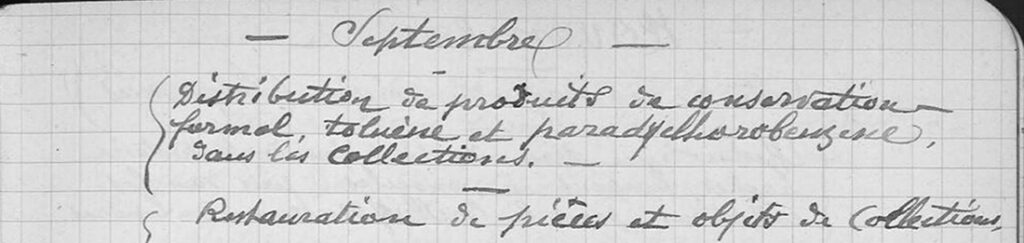 — Septembre —
Distribution de produits de conservation —
formol, toluène et paradyclhorobenzene,
dans les Collections. —
Restauration de pièces et objets de Collections.